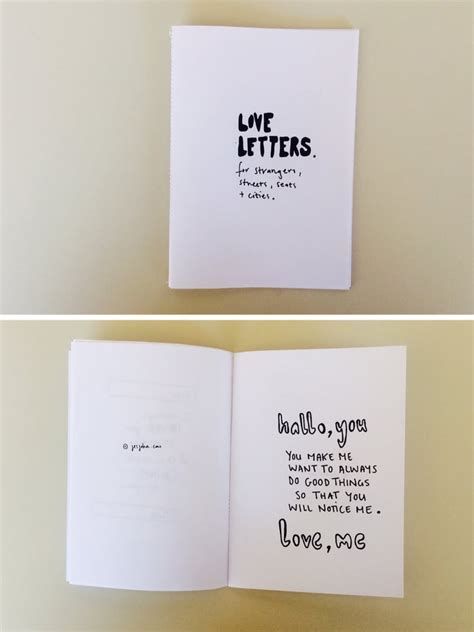 LOVE
LETTERS.
for strangers,
streets, seats
+ cities.
hallo, you
YOU MAKE ME
WANT TO ALWAYS
DO GOOD THINGS
SO THAT YOU
WILL NOTICE ME.
love, me